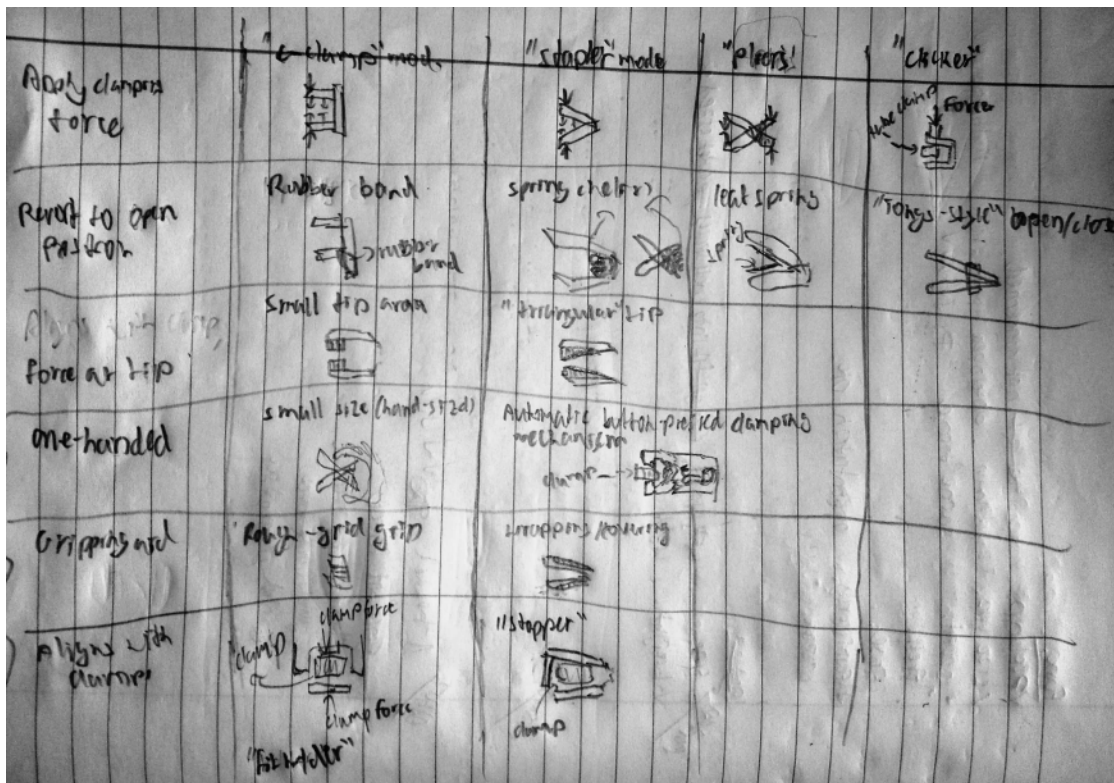 "C-clamp" mode "stapler" mode "Pliers" "clicker"
Apply clamping
force
tube clamp Force
Revert to open
position
Rubber band
rubber
band
spring (helar)
leaf spring
spring
"Tongs-style" open/close
Aligns with clamp,
force at tip
small tip area
"triangular" tip
one-handed
small size (hand-sized)
Automatic button-pressed clamping
mechanism
clamp
Gripping aid
Rough-grid grip
wrapping/covering
Aligns with
clamps
clamp force
"clamp
clamp force
"stopper"
clamp